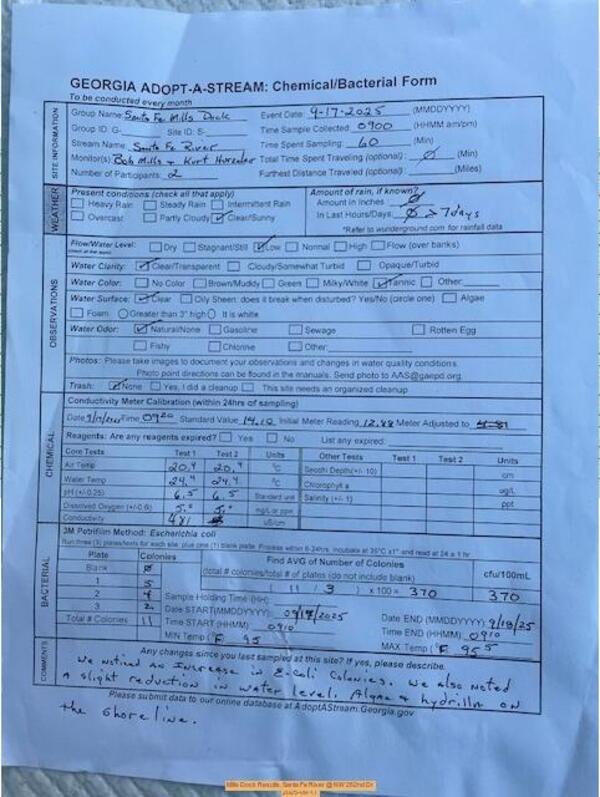 GEORGIA ADOPT-A-STREAM: Chemical/Bacterial Form
To be conducted every month
SITE INFORMATION
Group Name: Santa Fe Mills Dock Event Date: 9-17-2025 (MMDDYYYY)
Group ID: G- Site ID: S- Time Sample Collected 0900 (HHMM am/pm)
Stream Name: Santa Fe River Time Spent Sampling: 60 (Min)
Monitor(s) Bob Mills + Kurt Total Time Spent Traveling (optional): 0 (Min)
Number of Participants: 2 Furthest Distance Traveled (optional): (Miles)
WEATHER
Present conditions (check all that apply) Amount of rain, if known?
Heavy Rain Steady Rain Intermittent Rain Amount in Inches 0
Overcast Partly Cloudy Clear/Sunny In Last Hours/Days 7 days
*Refer to wunderground.com for rainfall data
OBSERVATIONS
Flow/Water Level: Dry Stagnant/Still Low Normal High Flow (over banks)
Water Clarity: Clear/Transparent Cloudy/Somewhat Turbid Opaque/Turbid
Water Color: No Color Brown/Muddy Green Milky/White Tannic Other:
Water Surface: Clear Oily Sheen: does it break when disturbed? Yes/No (circle one) Algae
Foam Greater than 3" high It is white
Water Odor: Natural/None Gasoline Sewage Rotten Egg
Fishy Chlorine Other:
Photos: Please take images to document your observations and changes in water quality conditions.
Photo point directions can be found in the manuals. Send photo to AAS@gaepd.org
Trash: None Yes, I did a cleanup This site needs an organized cleanup
CHEMICAL
Conductivity Meter Calibration (within 24hrs of sampling)
Date Time 0920 Standard Value Initial Meter Reading 12.88 Meter Adjusted to
Reagents: Are any reagents expired? Yes No List any expired:
Core Tests Test 1 Test 2 Units Other Tests Test 1 Test 2 Units
Air Temp 20.4 20.4 °C Secchi Depth(+/- 10) cm
Water Temp 24.4 24.4 °C Chlorophyll a ug/L
pH (+/-0.25) 6.5 6.5 Standard unit Salinity (+/- 1) ppt
Dissolved Oxygen (+/-0.6) mg/L or ppm
Conductivity 481 uS/cm
BACTERIAL
3M Petrifilm Method: Escherichia coli
Run three (3) plates/tests for each site, plus one (1) blank plate. Process within 6-24hrs, incubate at 35°C ±1° and read at 24 ± 1 hr
Plate Colonies Find AVG of Number of Colonies
Blank 0 (total # colonies/total # of plates (do not include blank) cfu/100mL
1 5 ( 11 / 3 ) x 100 = 370 370
2 4 Sample Holding Time (HH)
3 2 Date START(MMDDYYYY) Date END (MMDDYYYY) 9/18/25
Total # Colonies 11 Time START (HHMM) 0910 Time END (HHMM) 0910
MIN Temp (°F) 95 MAX Temp (°F) 95.5
COMMENTS
Any changes since you last sampled at this site? If yes, please describe.
We noticed an Increase in E-coli Colonies. We also noted
a slight reduction in water level. Algae + hydrilla on
Please submit data to our online database at AdoptAStream.Georgia.gov
the shoreline.
Mills Dock Results, Santa Fe River @ NW 262nd Dr.
2025-09-17